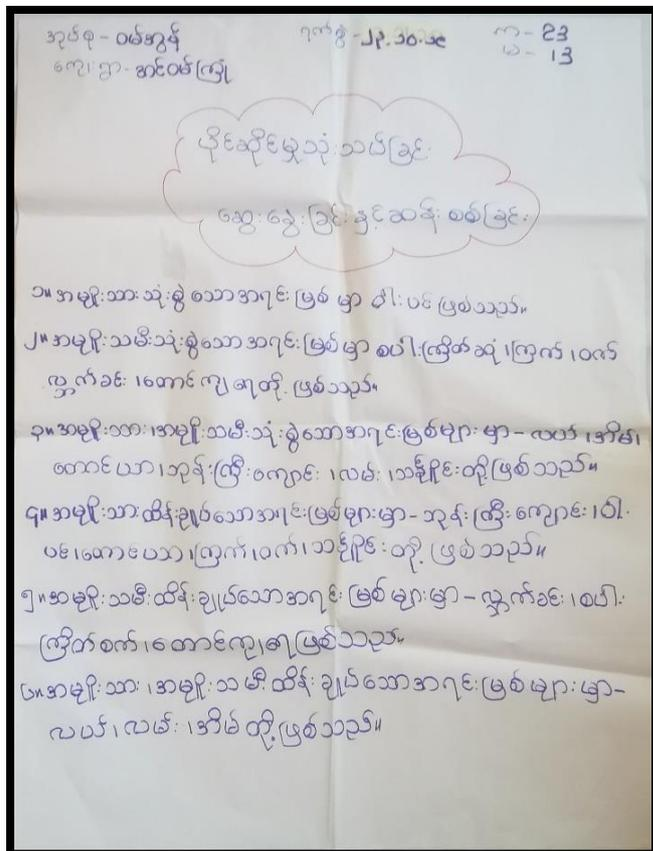 အုပ်စု - ဝမ်အွန် ရက်စွဲ - ၂၃.၁၀.၁၉ က - 23
ကျေးရွာ - အင်ဝမ်ကြုံ မ - 13
ပိုင်ဆိုင်မှုသုံးသပ်ခြင်း
ဆွေးနွေးခြင်းနှင့်ဆန်းစစ်ခြင်း
၁။ အမျိုးသားသုံးစွဲသောအရင်းမြစ်မှာ ဝါးပင်ဖြစ်သည်။
၂။ အမျိုးသမီးသုံးစွဲသောအရင်းမြစ်မှာ စပါးကြိတ်ဆုံ၊ ကြက်၊ ဝက်
လ္ဘက်ခင်း၊ တောင်ကျရေတို့ဖြစ်သည်။
၃။ အမျိုးသား၊ အမျိုးသမီးသုံးစွဲသောအရင်းမြစ်များမှာ - လယ်၊ အိမ်၊
တောင်ယာ၊ ဘုန်းကြီးကျောင်း၊ လမ်း၊ သင်္ချိုင်းတို့ဖြစ်သည်။
၄။ အမျိုးသားထိန်းချုပ်သောအရင်းမြစ်များမှာ - ဘုန်းကြီးကျောင်း၊ ဝါး
ပင်၊ တောင်ယာ၊ ကြက်၊ ဝက်၊ သင်္ချိုင်းတို့ဖြစ်သည်။
၅။ အမျိုးသမီးထိန်းချုပ်သောအရင်းမြစ်များမှာ - လ္ဘက်ခင်း၊ စပါး
ကြိတ်စက်၊ တောင်ကျရေဖြစ်သည်။
၆။ အမျိုးသား၊ အမျိုးသမီးထိန်းချုပ်သောအရင်းမြစ်များမှာ -
လယ်၊ လမ်း၊ အိမ်တို့ဖြစ်သည်။